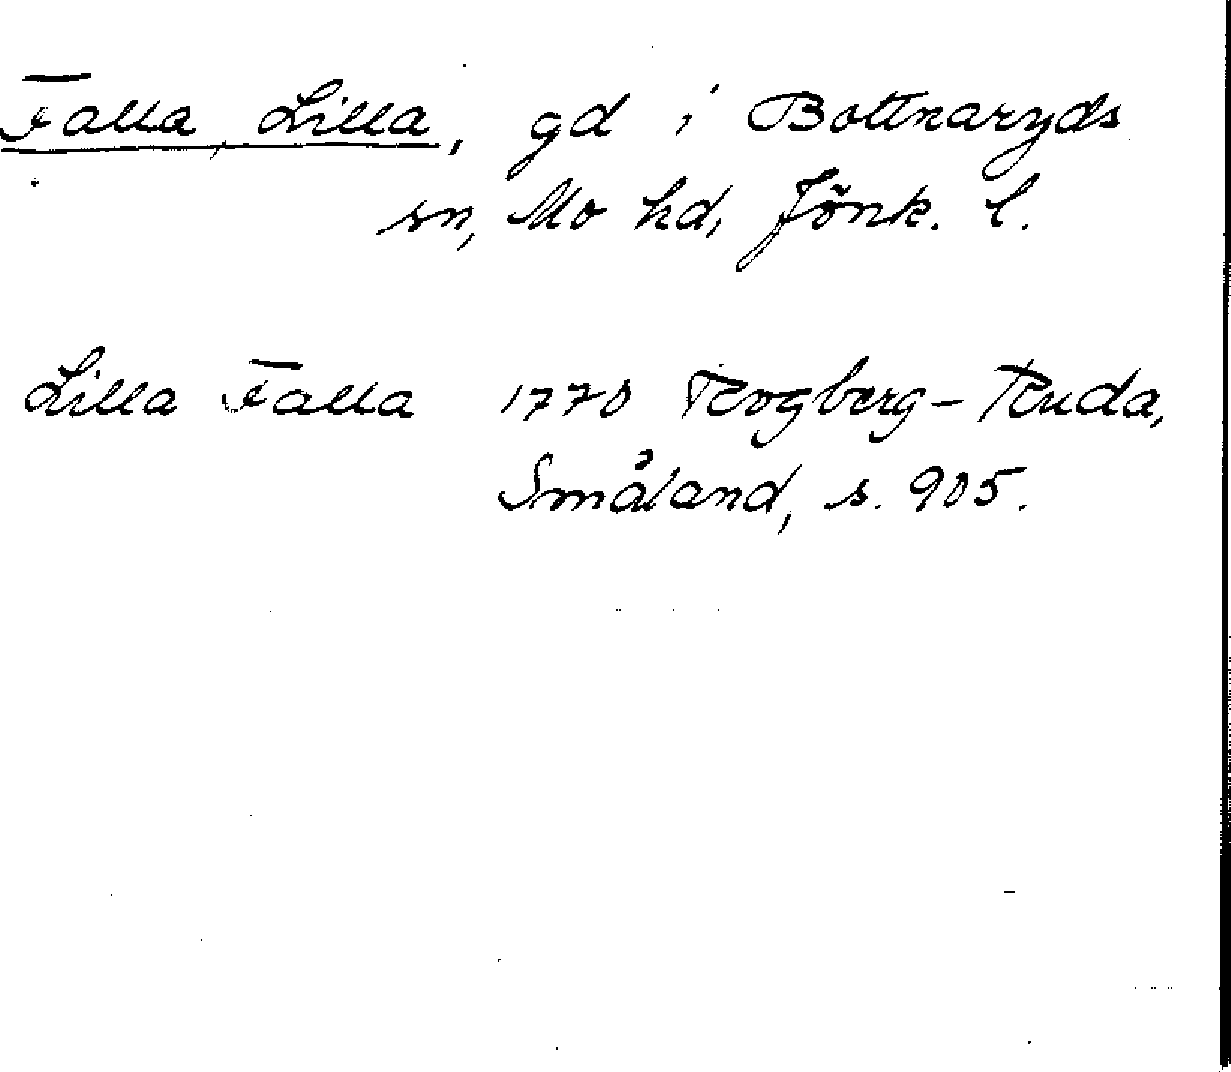 Falla, Lilla, gd i Bottnaryds
sn, Mo hd, Jönk. l.
Lilla Falla 1770 Rogberg-Ruda,
Småland, s. 905.